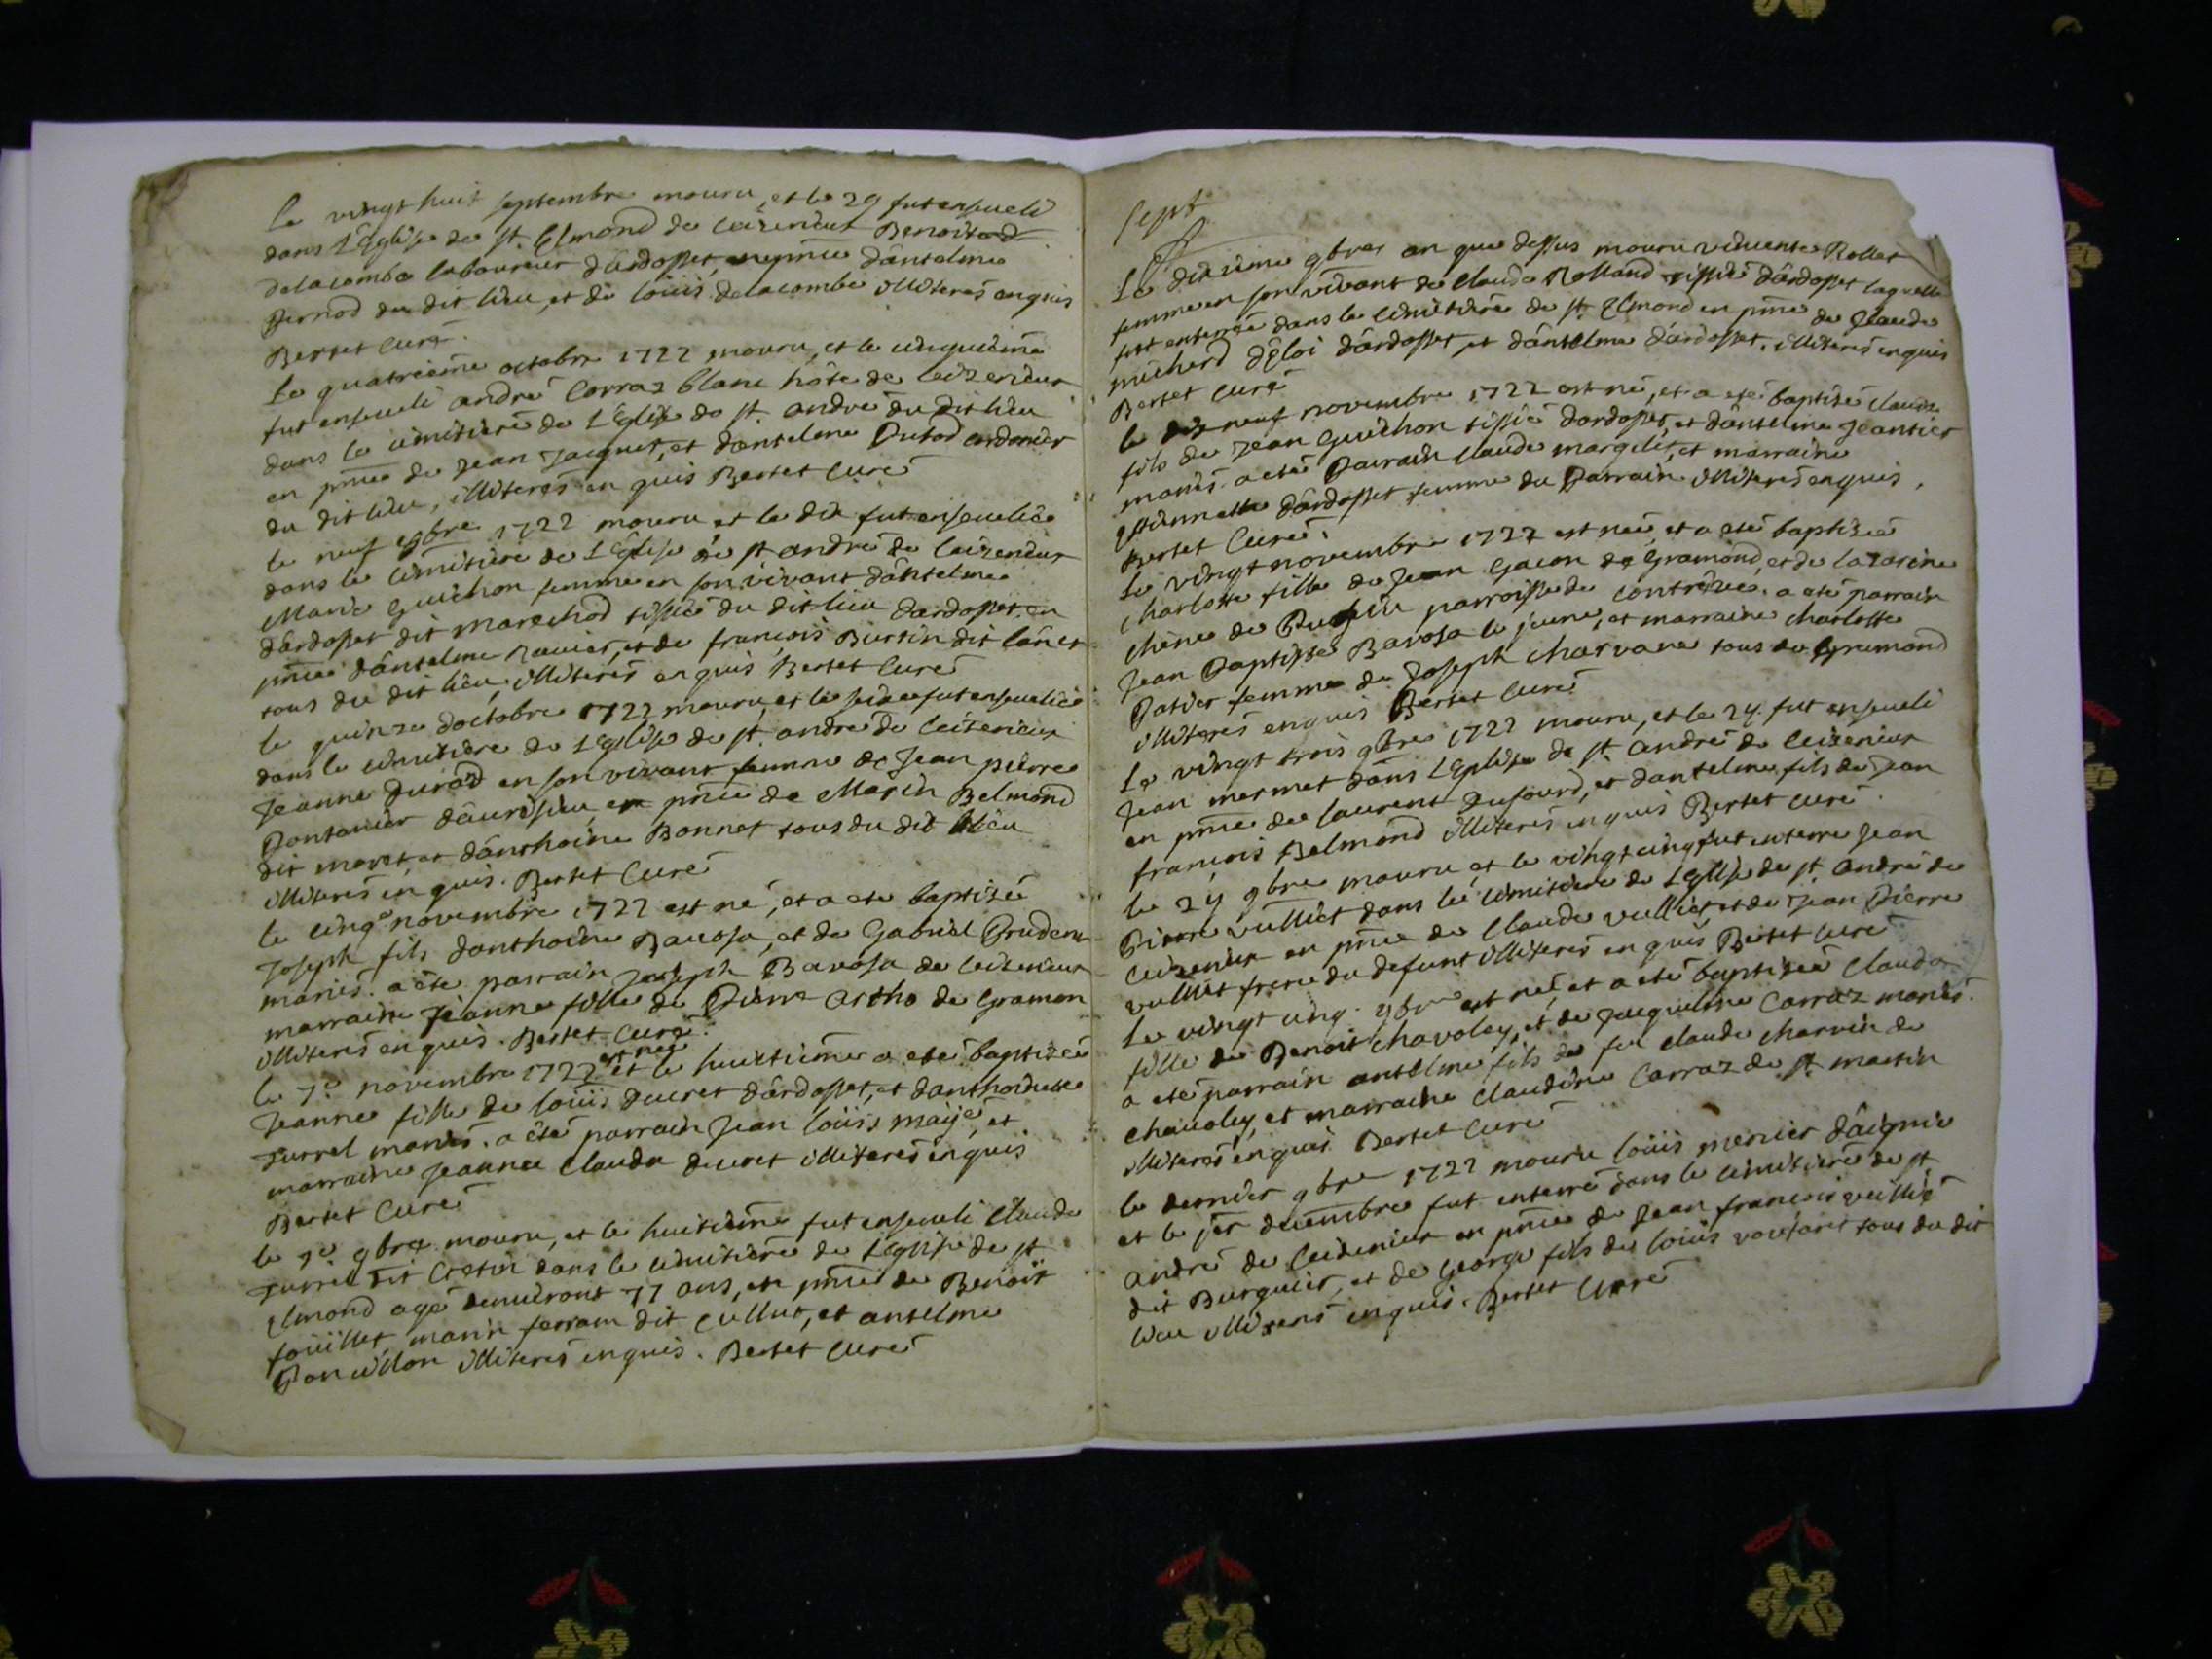 le vingt huit septembre mouru, et le 29 fut enseueli
dans L'Eglise de st. Elmond de ceizerieux Benoit
delacombe laboureur d'ârdosset, en pñce d'antelme
Pernod du dit lieu, et de loüis delacombe illiterés enquis
Bertet Curé.
Le quatrieme octobre 1722 mouru, et le cinquiéme
fut enseueli andré Carraz blanc hôte de ceizerieux
dans le cimitiere de L'Eglise de st. andre du dit lieu
en pñce de Jean Jacquet, et d'antelme Dutod cordonier
du dit lieu, illiterés en quis Bertet Curé
le neuf 1722 mouru et le dix fut enseuelie
dans le cimitiere de L'Eglise de st andré de ceizerieux
Marie Guichon femme en son vivant d'ântelme
d'ârdosset dit marechod tissié du dit lieu d'ardosset en
pñce d'ântelme Ravier, et de françois Burtin dit
tous du dit lieu, illiterés en quis Bertet Curé
le quinze d'octobre 1722 mouru, et le seize fut enseuelie
dans le cimitiere de L'Eglise de st. andré de ceizerieux
Jeanne Durod en son vivant femme de Jean pierre
Pontanier d'auresieu, en pñce de Marin Belmond
dit moret, et d'ânthoine Bonnet tous du dit lieu
illiterés en quis. Bertet Curé
le cinqe novembre 1722 est né, et a eté baptizé
Joseph fils d'anthoine Bavosa, et de Gabriel Prudent
mariés. a éte parrain Joseph Bavosa de ceizerieux
marraine Jeanne fille de Pierre artho de Gramon
illiterés en quis. Bertet Curé.
le 7e. novembre 1722 est née et le huictieme a eté baptizée
Jeanne fille de loüis ducret d'ârdosset, et d'anthoinette
Jurrel mariés. a été parrain Jean loüis, et
marraine Jeanne Claude ducret illiterés en quis
Bertet Curé
le 7e 9bre mouru, et le huitiéme fut enseueli Claude
dit Cretin dans le cimitiere de L'Eglise de st
Elmond agé denuiront 77 ans, en pñce de Benoit
foüillet, marin ferram dit Cullut, et antelme
Poncillon illiterés en quis. Bertet Curé
Sept
Le dixieme 9bre an que dessus mouru Rollet
femme en son vivant de Claude Rolland tissié d'ârdosset laquelle
fut enterrée dans le cimitiere de st. Elmond en pñce de Claude
michord d'ârdosset, et d'ântelme d'ârdosset. illiterés enquis
Bertet Curé
le dix neuf novembre 1722 est né, et a eté baptizé Claude
fils de Jean Guichon tissié d'ardosset, et d'ântelme Jeantier
mariés. a eté Parrain Claude, et marraine
d'ârdosset femme du Parrain illiterés enquis.
Bertet Curé.
Le vingt novembre 1722 est née, et a eté baptizée
Charlotte fille de Jean Gacon de Gramond, et de Catarine
Chêne de parroisse de Contrevoz. a eté parrain
Jean Baptiste Bavosa le jeune, et marraine Charlotte
femme de Joseph charvane tous de Gramond
illiterés enquis Bertet Curé
Le vingt trois 9bre 1722 mouru, et le 24 fut enseueli
Jean mermet dans L'Eglise de st andré de ceizerieux
en pñce de laurent Dufourd, et d'antelme fils de Jean
françois Belmond illiterés en quis Bertet Curé.
le 24 9bre mouru et le vingt cinq fut enterré Jean
Pierre vulliet dans le cimitiere de L'Eglise de st. andré de
ceizerieux en pñce de Claude vulliet, et de Jean Pierre
vulliet frere du defunt illiterés en quis Bertet Curé
Le vingt cinq. 9bre est née, et a eté baptizée Clauda
fille de Benoit Chavoley, et de Jacqueline Carraz mariés.
a eté parrain antelme fils de feu Claude charvin de
Chavoley, et marraine Claudine Carraz de st. martin
illiterés en quis Bertet Curé
le dernier 9bre 1722 mouru loüis mercier d'
et le jer decembre fut enterré dans le cimitiere de st.
andré de ceizerieux en pñce de Jean françois
dit Burguier, et de George fils de loüis tous du dit
lieu illiterés enquis. Bertet Curé